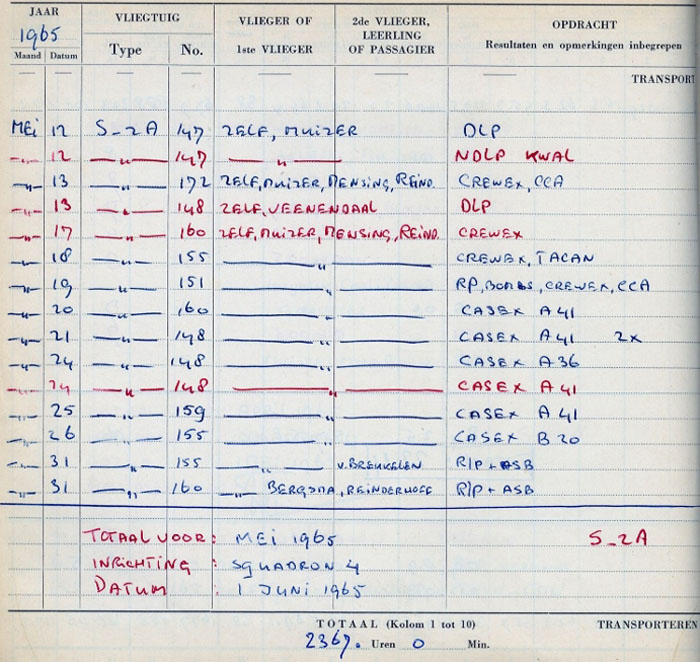 JAAR VLIEGTUIG VLIEGER OF 2de VLIEGER, OPDRACHT
1965 1ste VLIEGER LEERLING Resultaten en opmerkingen inbegrepen
Maand Datum Type No. OF PASSAGIER
TRANSPORT
MEI 12 S-2A 147 ZELF, MUIZER DLP
—„— 12 —„— 147 —„— NDLP KWAL
—„— 13 —„— 172 ZELF, MUIZER, MENSING, REIND. CREWEX, CCA
—„— 13 —„— 148 ZELF, VEENENDAAL DLP
—„— 17 —„— 160 ZELF, MUIZER, MENSING, REIND. CREWEX
—„— 18 —„— 155 —„— CREWEX, TACAN
—„— 19 —„— 151 —„— RP, BOMBS, CREWEX, CCA
—„— 20 —„— 160 —„— CASEX A41
—„— 21 —„— 148 —„— CASEX A41 2x
—„— 24 —„— 148 —„— CASEX A36
—„— 24 —„— 148 —„— CASEX A41
—„— 25 —„— 159 —„— CASEX A41
—„— 26 —„— 155 —„— CASEX B20
—„— 31 —„— 155 —„— v. BREUKELEN R/P + ASB
—„— 31 —„— 160 —„— BERGSMA, REINDERHOFF R/P + ASB
TOTAAL VOOR: MEI 1965 S-2A
INRICHTING : SQUADRON 4
DATUM : 1 JUNI 1965
TOTAAL (Kolom 1 tot 10) TRANSPORTEREN
2367. Uren 0 Min.